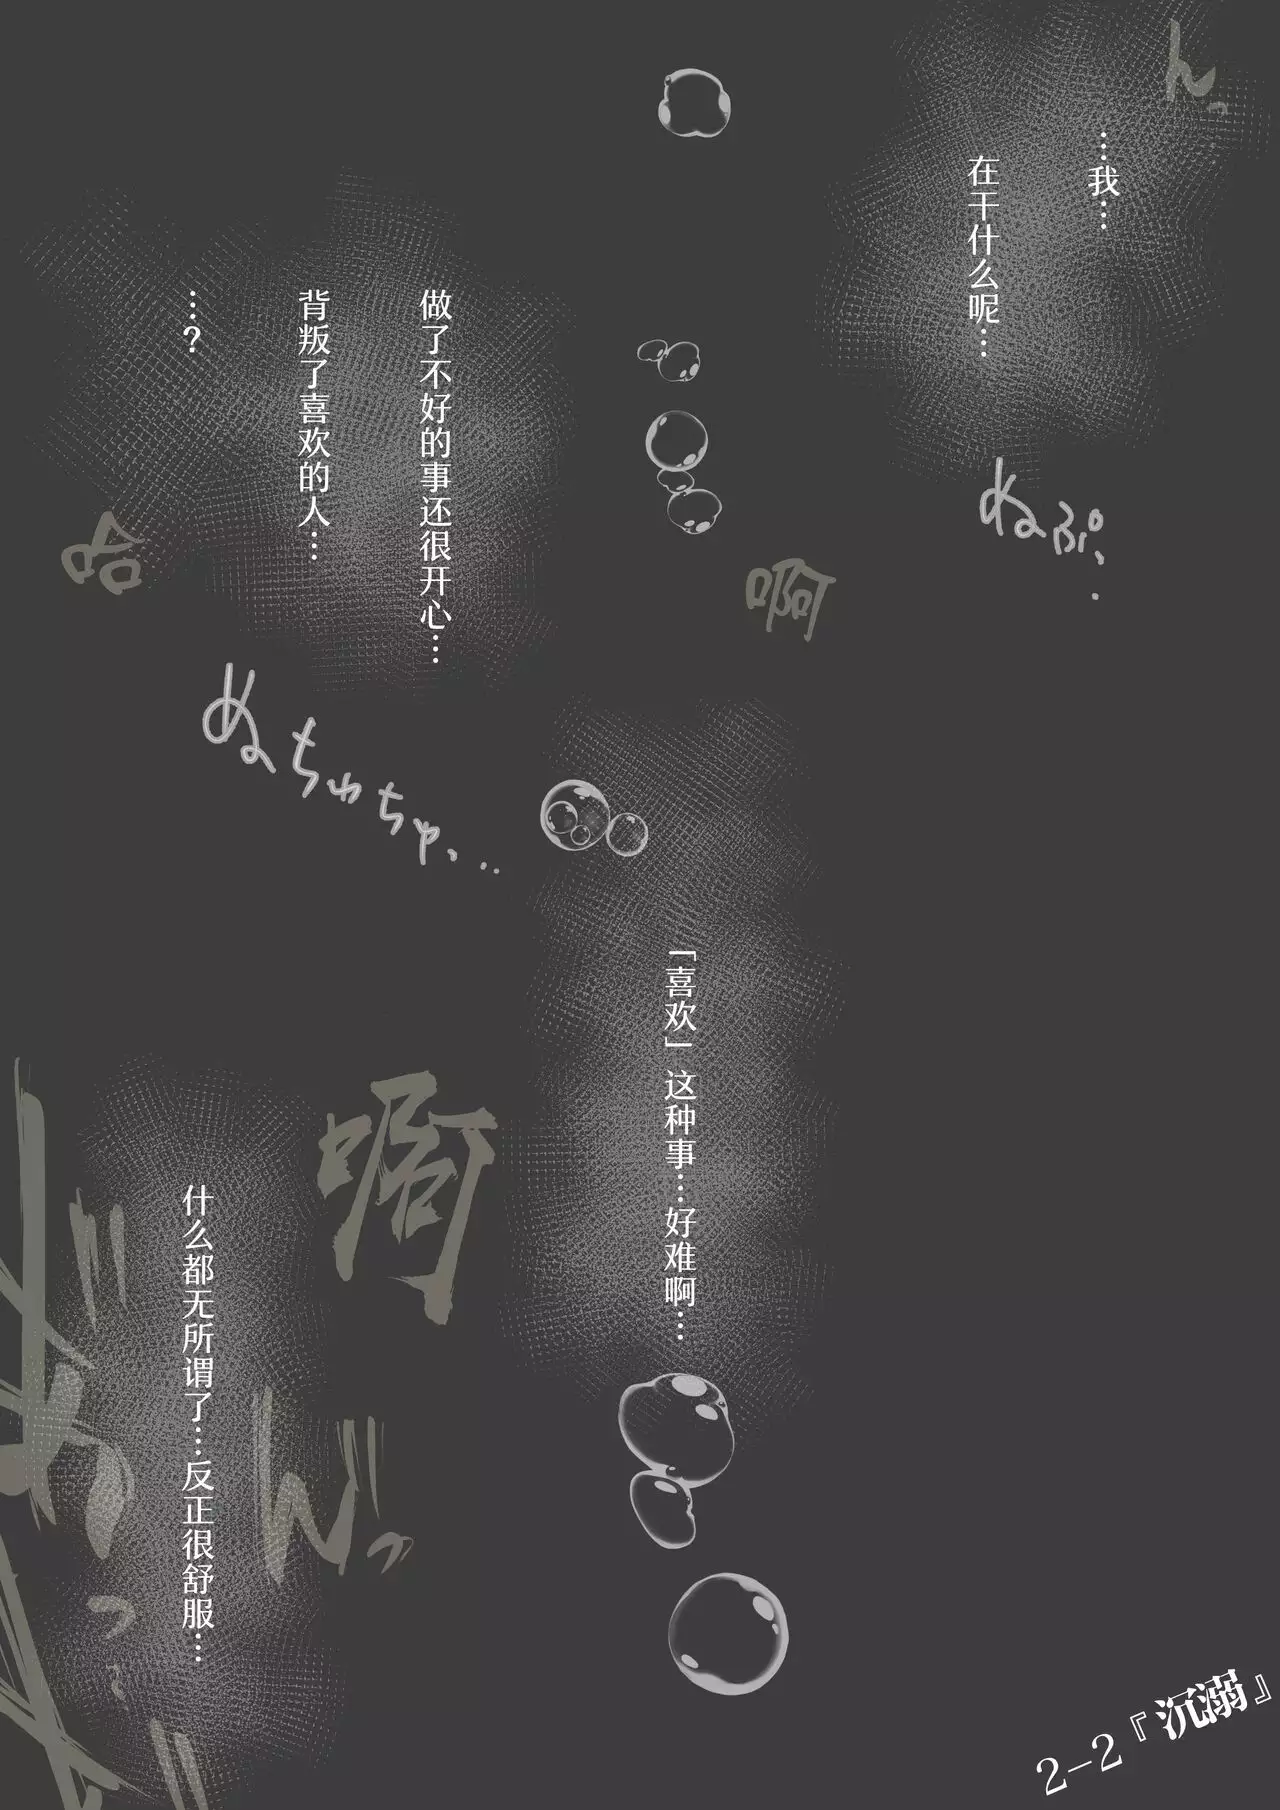 ん。
…我…
在干什么呢…
ぬぷ、.
啊
做了不好的事还很开心…
背叛了喜欢的人…
…?
哈
ぬちゅちゅ、..
「喜欢」这种事…好难啊…
啊
什么都无所谓了…反正很舒服…
ん゛っ
2-2『沉溺』